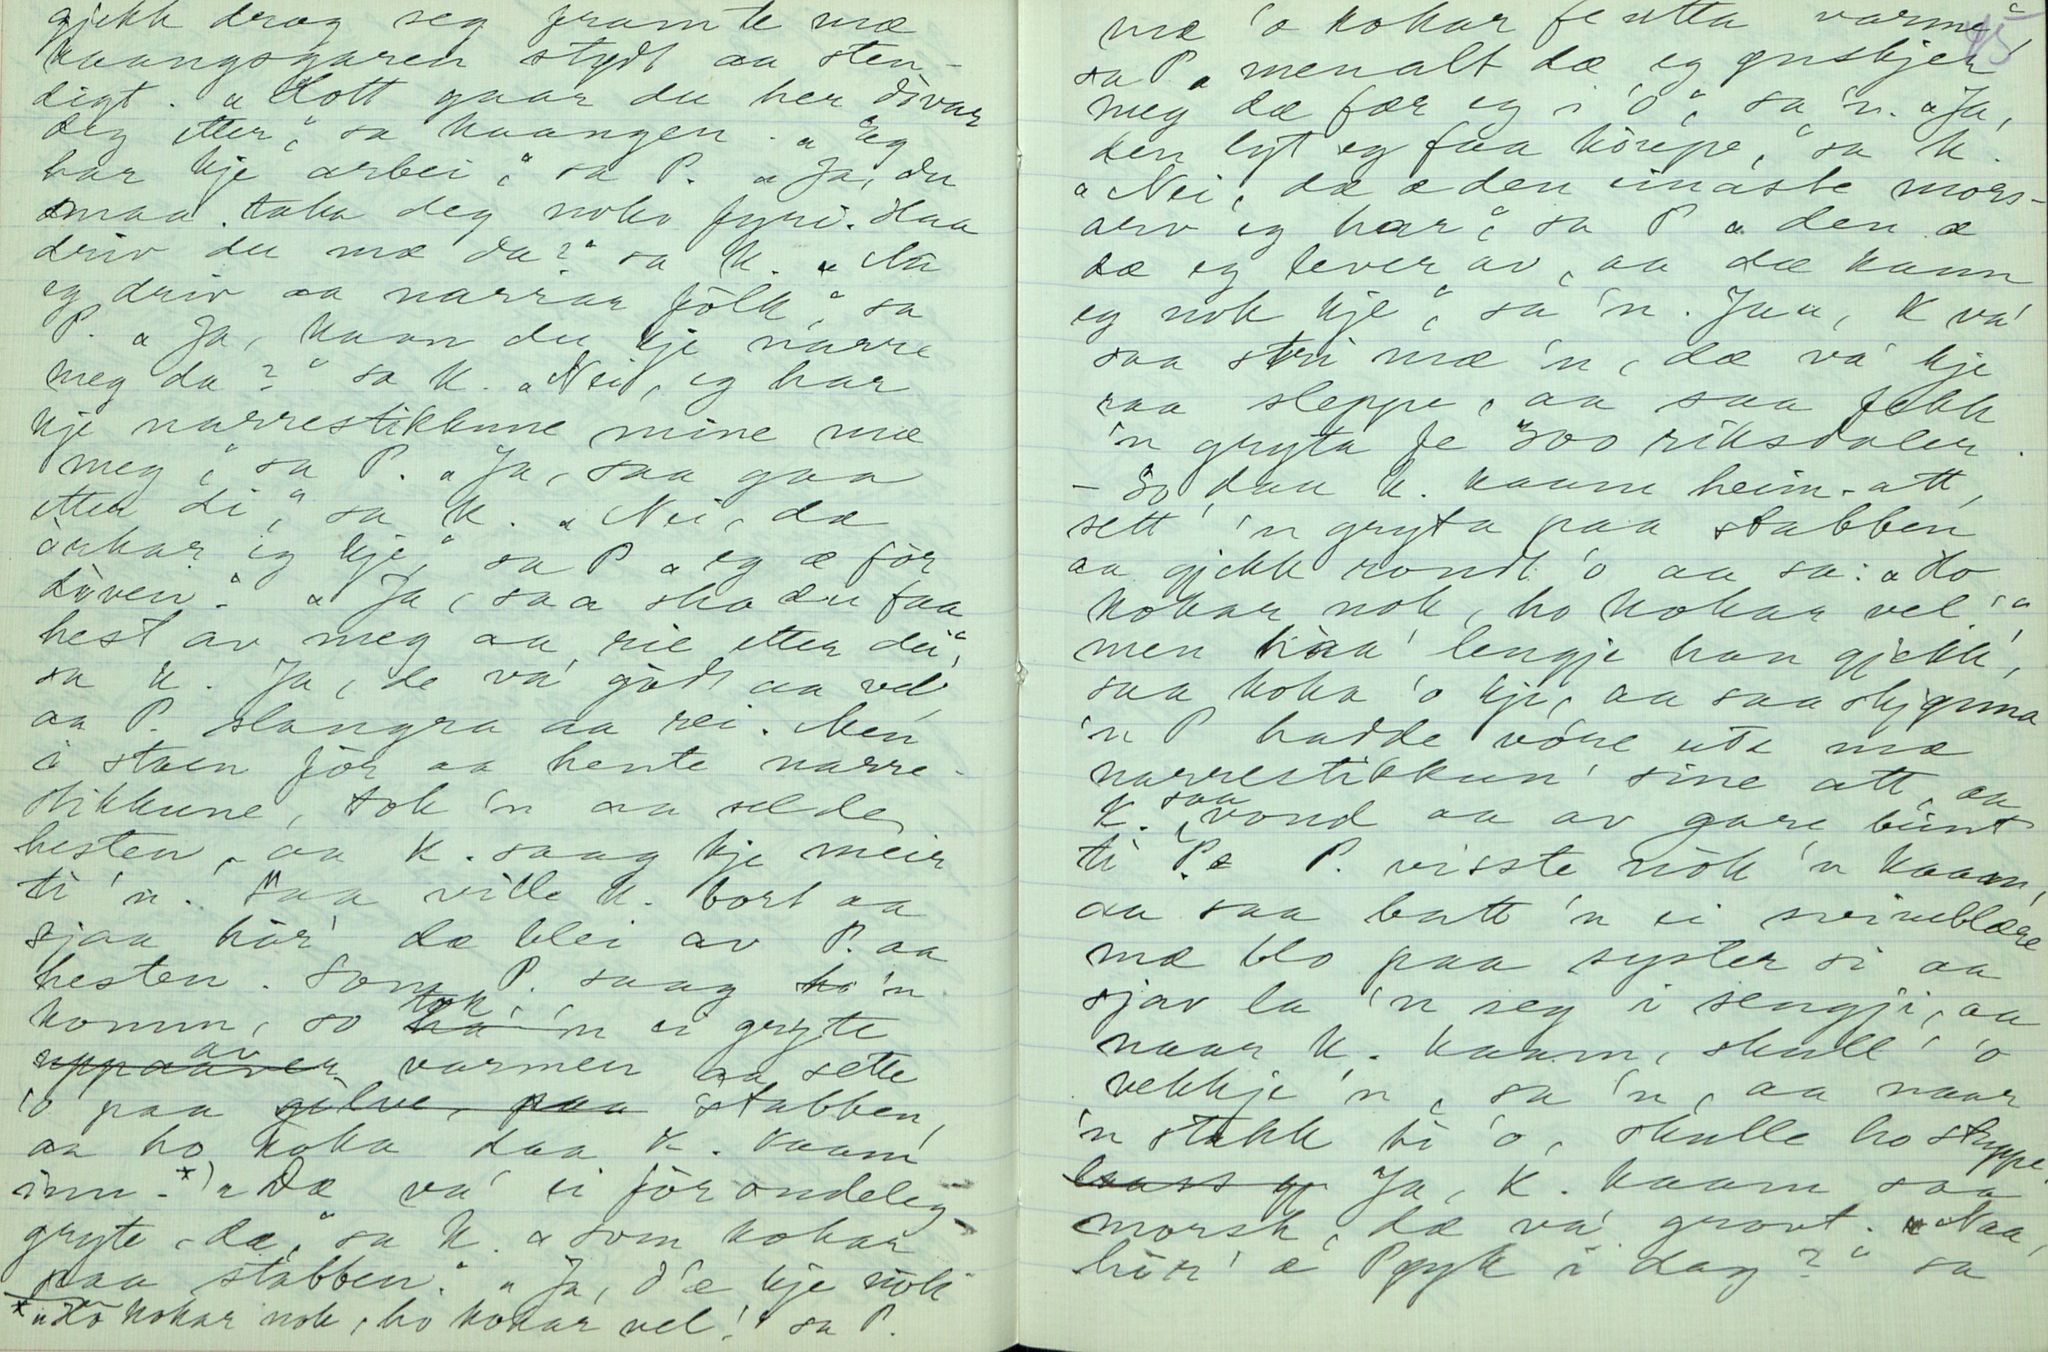 gjekk drog seg framte mæ
kaangsgaren stydt aa sten-
digt. „Kott gaar du her divar
deg etter," sa kaangen. „Eg
har kje arbei," sa P. „Ja, du
maa taka deg noko fyri. Haa
driv du mæ da?" sa K. „Nå
eg driv aa narrar fölk," sa
P. „Ja, kaan du kje narre
meg da?" sa K. „Nei, eg har
kje narrestikkune mine mæ
meg," sa P. „Ja, saa gaa
etter di," sa K. „Nei, dæ
orkar eg kje," sa P „eg æ för
döven." „Ja, saa ska du faa
hest av meg aa rie etter dei",
sa K. Ja, de va' godt aa vel,
aa P. slangra aa rei. Men
i staen för aa hente narre-
stikkune, tok 'n aa selde
hesten, aa K. saag kje meir
ti 'n. Saa ville K. bort aa
sjaa hör' dæ blei av P. aa
hesten. Som P. saag ho 'n
komm, so tok 'n ei gryte
av varmen aa sette
'o paa gölve, paa stabben,
aa ho koka daa K. kaam
inn. *) „Dæ va' ei förondeleg
gryte, dæ," sa K. „som kokar
paa stabben." „Ja, d'æ kje nok
* „Ho kokar nok, ho kokar vel!" sa P.
mæ 'o kokar fe utta varme",
sa P „menalt dæ eg ynskjer
meg dæ fær eg i 'o", sa 'n. „Ja,
den lyt eg faa köupe," sa K.
„Nei, dæ æ den einaste mors-
arv eg har," sa P „den æ
dæ eg lever av, aa dæ kann
eg nok kje," sa 'n. Jaa, K va'
saa stri mæ 'n, dæ va' kje
raa sleppe, aa saa fekk
'n gryta fe 300 riksdaler.
– So daa K. kaam heim-att,
sett' 'n gryta paa stabben
aa gjekk rondt 'o aa sa: „Ho
kokar nok, ho kokar vel!"
men haa' lengje han gjekk,
saa koka 'o kje, aa saa skjynna
'n P hadde vöre ute mæ
narrestikkun' sine att, aa
K. saa vond aa av gare beint
ti P. P. visste nok 'n kaam,
aa saa batt 'n ei svineblære
mæ blo paa syster si aa
sjav la 'n seg i sengji, aa
naar K. kaam, skull' 'o
vekkje 'n, sa 'n, aa naar
'n stakk ti 'o, skulle ho stuppe.
Ja, K. kaam saa
morsk, dæ va' grovt. „Naa,
hör' æ P i dag?" sa
45